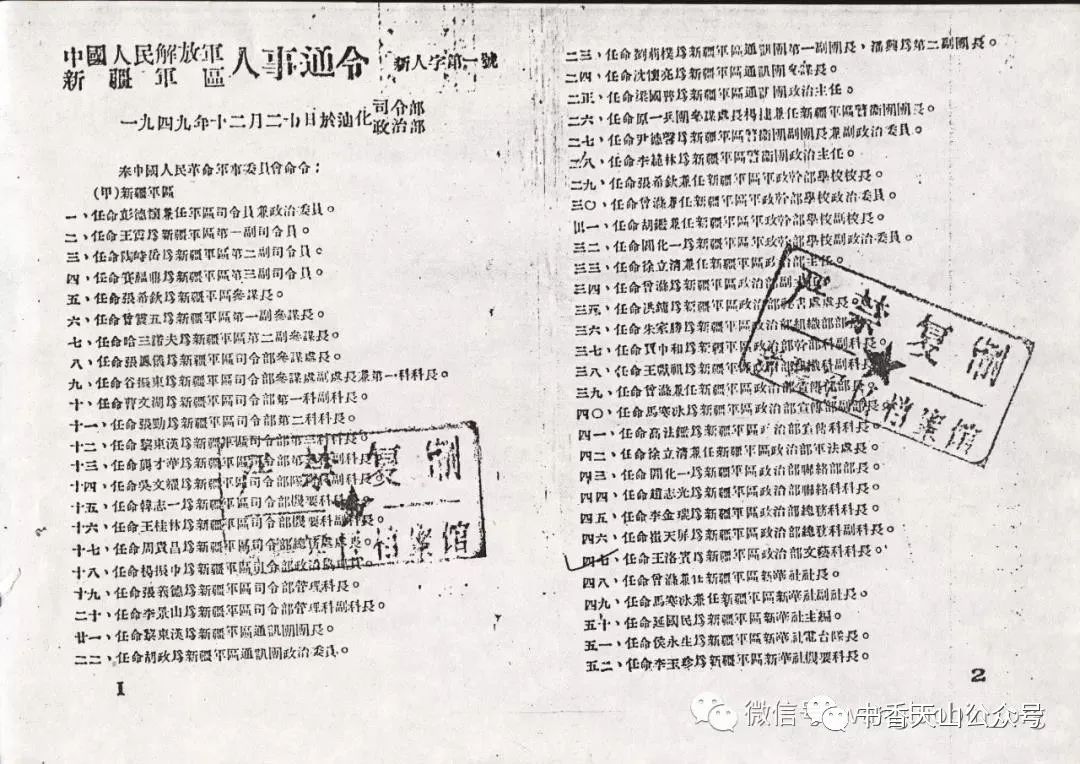 中國人民解放軍
新疆軍區
人事通令
新人字第一號
一九四九年十二月二十日於迪化
司令部
政治部
奉中國人民革命軍事委員會命令：
(甲)新疆軍區
一、任命彭德懷兼任軍區司令員兼政治委員。
二、任命王震爲新疆軍區第一副司令員。
三、任命陶峙岳爲新疆軍區第二副司令員。
四、任命賽福鼎爲新疆軍區第三副司令員。
五、任命張希欽爲新疆軍區參謀長。
六、任命曾震五爲新疆軍區第一副參謀長。
七、任命哈三諾夫爲新疆軍區第二副參謀長。
八、任命張鳳儀爲新疆軍區司令部參謀處長。
九、任命谷振東爲新疆軍區司令部參謀處副處長兼第一科科長。
十、任命曹文湖爲新疆軍區司令部第一科副科長。
十一、任命張勁爲新疆軍區司令部第二科科長。
十二、任命黎東漢爲新疆軍區司令部第三科科長。
十三、任命龔才華爲新疆軍區司令部第 科副科長。
十四、任命吳文耀爲新疆軍區司令部隊 副科長。
十五、任命韓志一爲新疆軍區司令部機要科科長。
十六、任命王桂林爲新疆軍區司令部機要科副科長。
十七、任命周貫昌爲新疆軍區司令部總務處處長。
十八、任命楊振中爲新疆軍區司令部政治
十九、任命張義德爲新疆軍區司令部管理科長。
二十、任命李景山爲新疆軍區司令部管理科副科長。
廿一、任命黎東漢爲新疆軍區通訊團團長。
二二、任命胡政爲新疆軍區通訊團政治委員。
1
二三、任命劉 樸爲新疆軍區通訊團第一副團長，潘 爲第二副團長。
二四、任命沈懷亮爲新疆軍區通訊團參謀長。
二五、任命梁國 爲新疆軍區通訊團政治主任。
二六、任命原一兵團參謀處長楊 兼任新疆軍區警衛團團長。
二七、任命尹德馨爲新疆軍區警衛團副團長兼副政治委員。
二八、任命李 林爲新疆軍區警衛團政治主任。
二九、任命張希欽兼任新疆軍區軍政幹部學校校長。
三〇、任命曾滌兼任新疆軍區軍政幹部學校政治委員。
三一、任命胡鑑兼任新疆軍區軍政幹部學校副校長。
三二、任命 化一爲新疆軍區軍政幹部學校副政治委員。
三三、任命徐立清兼任新疆軍區政治部主任。
三四、任命曾滌爲新疆軍區政治部副主任。
三五、任命洪 爲新疆軍區政治部秘書處處長。
三六、任命朱家勝爲新疆軍區政治部組織部部長。
三七、任命賈巾和爲新疆軍區政治部幹部科副科長。
三八、任命王 爲新疆軍區政治部組織科副科長。
三九、任命曾滌兼任新疆軍區政治部宣傳部部長。
四〇、任命馬寒冰爲新疆軍區政治部宣傳部副部長。
四一、任命高法鑑爲新疆軍區政治部宣傳科科長。
四二、任命徐立清兼任新疆軍區政治部軍法處長。
四三、任命 化一爲新疆軍區政治部聯絡部部長。
四四、任命趙志光爲新疆軍區政治部聯絡科科長。
四五、任命李金 爲新疆軍區政治部總務科科長。
四六、任命崔天屏爲新疆軍區政治部總務科副科長。
四七、任命王洛賓爲新疆軍區政治部文藝科科長。
四八、任命曾滌兼任新疆軍區新華社社長。
四九、任命馬寒冰兼任新疆軍區新華社副社長。
五十、任命延國民爲新疆軍區新華社主編。
五一、任命侯永生爲新疆軍區新華社電台隊長。
五二、任命李玉珍爲新疆軍區新華社機要科長。
2
严禁复制
档案馆
严禁复制
档案馆
微信号
书香天山公众号